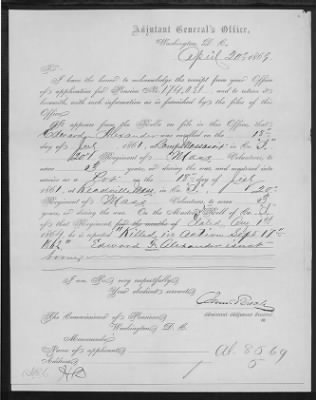 Adjutant General's Office,
Washington, D. C.
April 20th 1869
Sir:
I have the honor to acknowledge the receipt from your Office
of application for Pension No. 174,031, and to return it
herewith with such information as is furnished by the files of this
Office.
It appears from the Rolls on file in this Office, that
Edward Alexander was enrolled on the 18th
day of July, 1861, at Camp in Co. "I",
20th Regiment of Mass Volunteers, to
serve 3 years, or during the war, and mustered into
service as a Pvt on the 18th day of July,
1861, at Readville Mass, in Co. I, 20th
Regiment of Mass Volunteers, to serve 3
years, or during the war. On the Muster Roll of Co. I
of that Regiment, for the months of Dated
186 , he is reported "Killed in Action Sept 17th
1862" Edward F. Alexander not
borne
I am, Sir, very respectfully,
Your obedient servant,
Assistant Adjutant General.
The Commissioner of Pensions
Washington, D. C.
Memoranda:
Name of applicant,
Address,